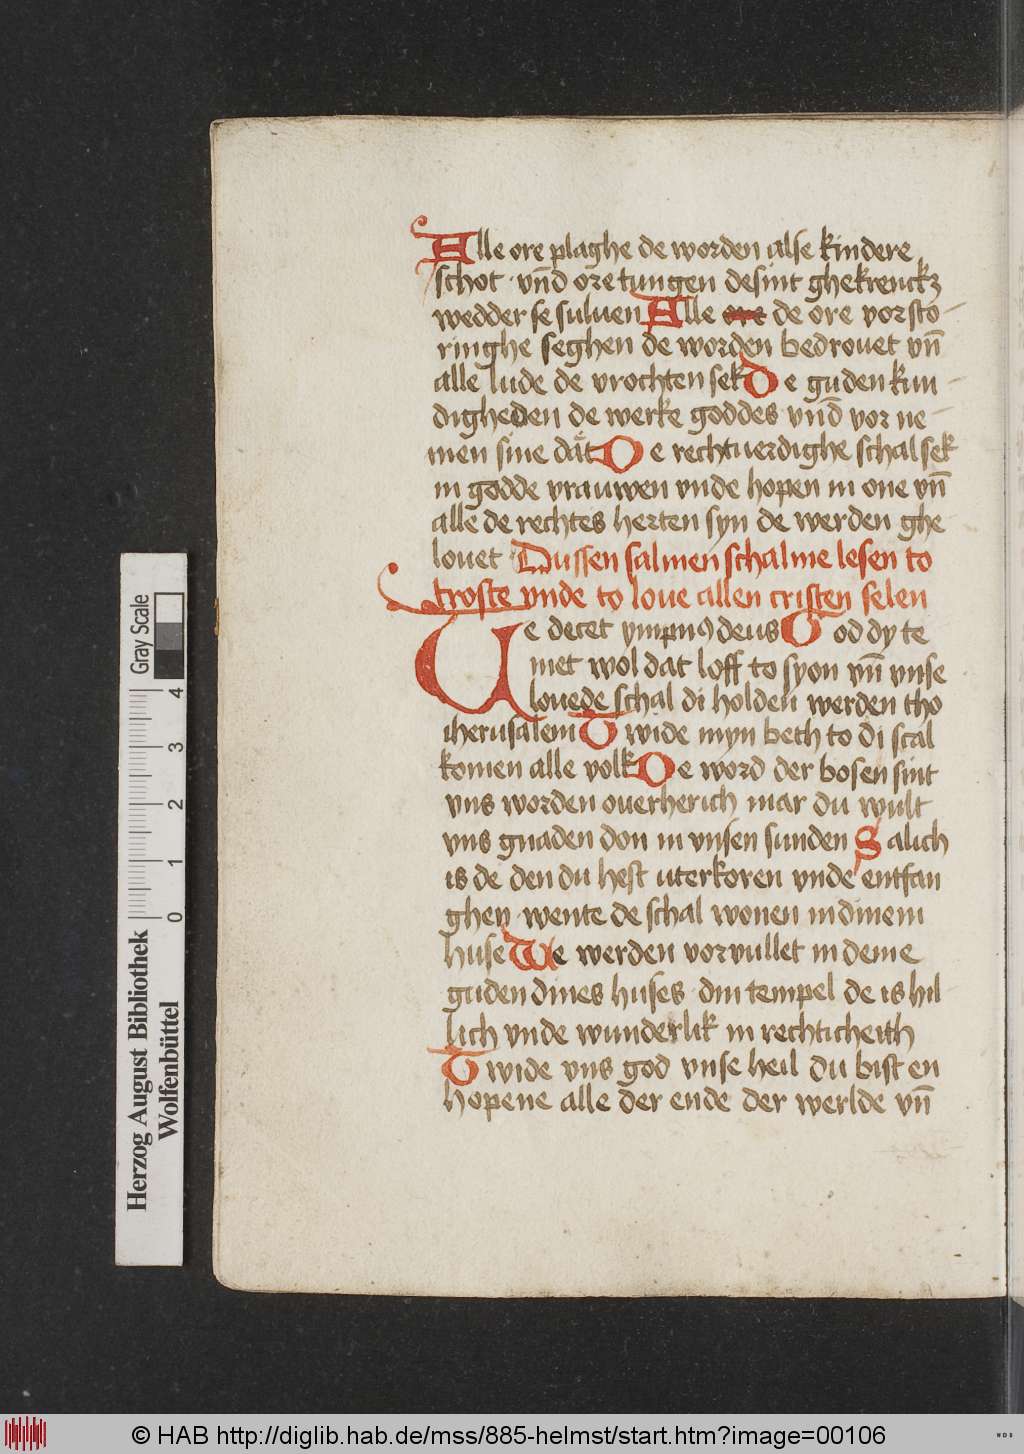 Alle ore plaghe de worden alse kindere
schot · vn̄d ore tungen de sint ghekrenckz
wedder se suluen Alle ore de ore vorsto-
ringhe seghen de worden bedrouet vn̄
alle lude de vrochten sek De guden kun-
digheden de werke goddes vn̄d vor ne-
men sine dåt De rechtuerdighe schal sek
in godde vrauwen vnde hopen in one vn̄
alle de rechtes herten syn de werden ghe-
louet Dussen salmen schalme lesen to
troste vnde to loue allen cristen selen
Te decet ympnꝰ deus God dy te
met wol dat loff to syon vn̄ vnse
louede schal di holden werden tho
iherusalem Twide myn beth to di scal
komen alle volk De word der bosen sint
vns worden ouerherich mar du wult
vns gnaden don in vnsen sunden Salich
is de den du hest uterkoren vnde entfan
ghen · wente de schal wonen in dinem
huse We werden vorvullet in deme
guden dines huses · din tempel de is hil-
lich vnde wunderlik in rechticheith
Twide vns god vnse heil du bist en
hopene alle der ende der werlde vn̄
Gray Scale
4 3 2 1 0
Herzog August Bibliothek
Wolfenbüttel
© HAB http://diglib.hab.de/mss/885-helmst/start.htm?image=00106